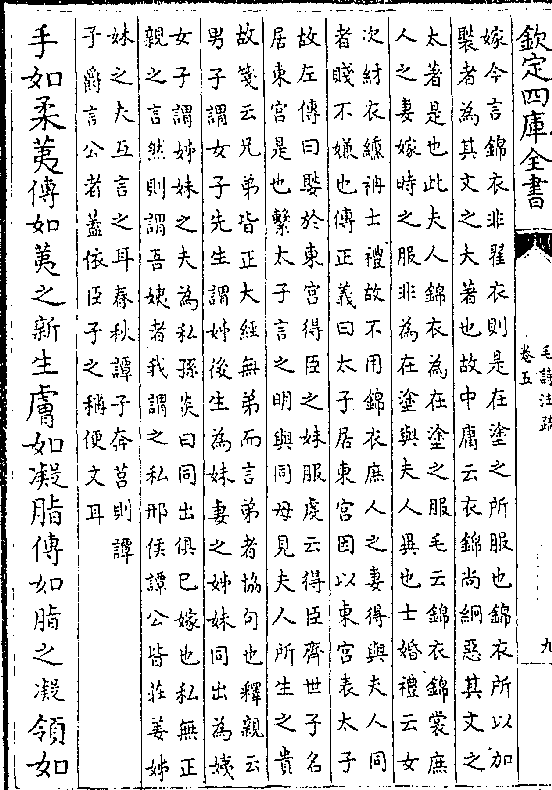 欽定四庫全書
毛詩注疏
卷五
九
嫁今言錦衣非翟衣則是在塗之所服也錦衣所以加
褧者為其文之大著也故中庸云衣錦尚絅惡其文之
太著是也此夫人錦衣為在塗之服毛云錦衣錦裳庶
人之妻嫁時之服非為在塗與夫人異也士婚禮云女
次紂衣纁衻士禮故不用錦衣庶人之妻得與夫人同
者賤不嫌也傳正義曰太子居東宮因以東宮表太子
故左傳曰娶於東宮得臣之妹服虔云得臣齊世子名
居東宮是也繫太子言之明與同母見夫人所生之貴
故箋云兄弟皆正大經無弟而言弟者協句也釋親云
男子謂女子先生謂姊後生為妹妻之姊妹同出為姨
女子謂姊妹之夫為私孫炎曰同出俱已嫁也私無正
親之言然則謂吾姨者我謂之私邢侯譚公皆莊姜姊
妹之夫互言之耳春秋譚子奔莒則譚
子爵言公者蓋依臣子之稱便文耳
手如柔荑傳如荑之新生膚如凝脂傳如脂之凝領如